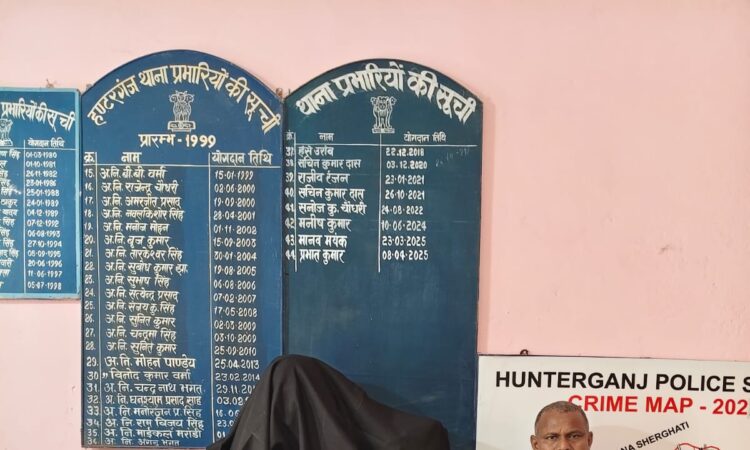 प्रभारियों की सूची
योगदान तिथि
01-03-1980
01-10-1981
26-11-1982
26-11-1983
25-01-1988
04-12-1989
07-12-1992
06-08-1993
27-10-1994
20-06-1995
11-06-1997
05-07-1998
हण्टरगंज थाना प्रभारियों की सूची
प्रारम्भ-1999
क्र. नाम योगदान तिथि
15. अ.नि. बी.बी. वर्मा 15-01-1999
16. अ.नि. राजेन्द्र चौधरी 02-06-2000
17. अ.नि. अमरजीत प्रसाद 19-09-2000
18. अ.नि. नवलकिशोर सिंह 28-04-2001
19. अ.नि. मनोज मोहन 01-11-2002
20. अ.नि. बृज कुमार 15-09-2003
21. अ.नि. तारकेश्वर सिंह 30-01-2004
22. अ.नि. सुबोध कुमार 19-08-2005
23. अ.नि. सुभाष सिंह 06-08-2006
24. अ.नि. सत्येन्द्र प्रसाद 07-02-2007
25. अ.नि. संजय कु. सिंह 17-05-2008
26. अ.नि. सुनित कुमार 02-03-2009
27. अ.नि. चन्द्रमा सिंह 03-10-2009
28. अ.नि. सुनित कुमार 25-09-2010
29. अ.नि. मोहन पाण्डेय 25-04-2013
30. " विनोद कुमार वर्मा 23-02-2014
31. अ.नि. चन्द्र नाथ भगत 29-11
32. अ.नि. घनश्याम प्रसाद साह 03-02
33. अ.नि. मनोरंजन प्र. सिंह 16-06
34. अ.नि. राम विजय सिंह 02
35. अ.नि. माईकल मरांडी 01
36. अ.नि.
थाना प्रभारियों की सूची
क्र. नाम योगदान तिथि
37 22.12.2018
38 सचिन कुमार दास 03.12.2020
39 राजीव रंजन 23-01-2021
40 सचिन कुमार दास 26-10-2021
41 सनोज कु. चौधरी 24-08-2022
42 मनीष कुमार 10-06-2024
43 मानव मयंक 23-03-2025
44 प्रभात कुमार 08-04-2025
HUNTERGANJ POLICE S
CRIME MAP - 202
NA SHERGHATI